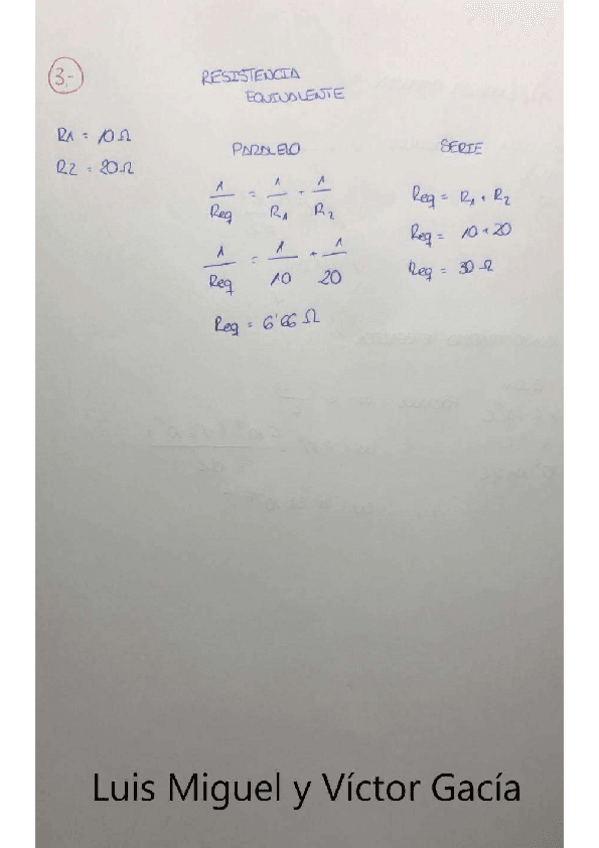 3.-
RESISTENCIA
EQUIVALENTE
R1 = 10 Ω
R2 = 20 Ω
PARALELO
1/Req = 1/R1 + 1/R2
1/Req = 1/10 + 1/20
Req = 6'66 Ω
SERIE
Req = R1 + R2
Req = 10 + 20
Req = 30 Ω
Luis Miguel y Víctor Gacía